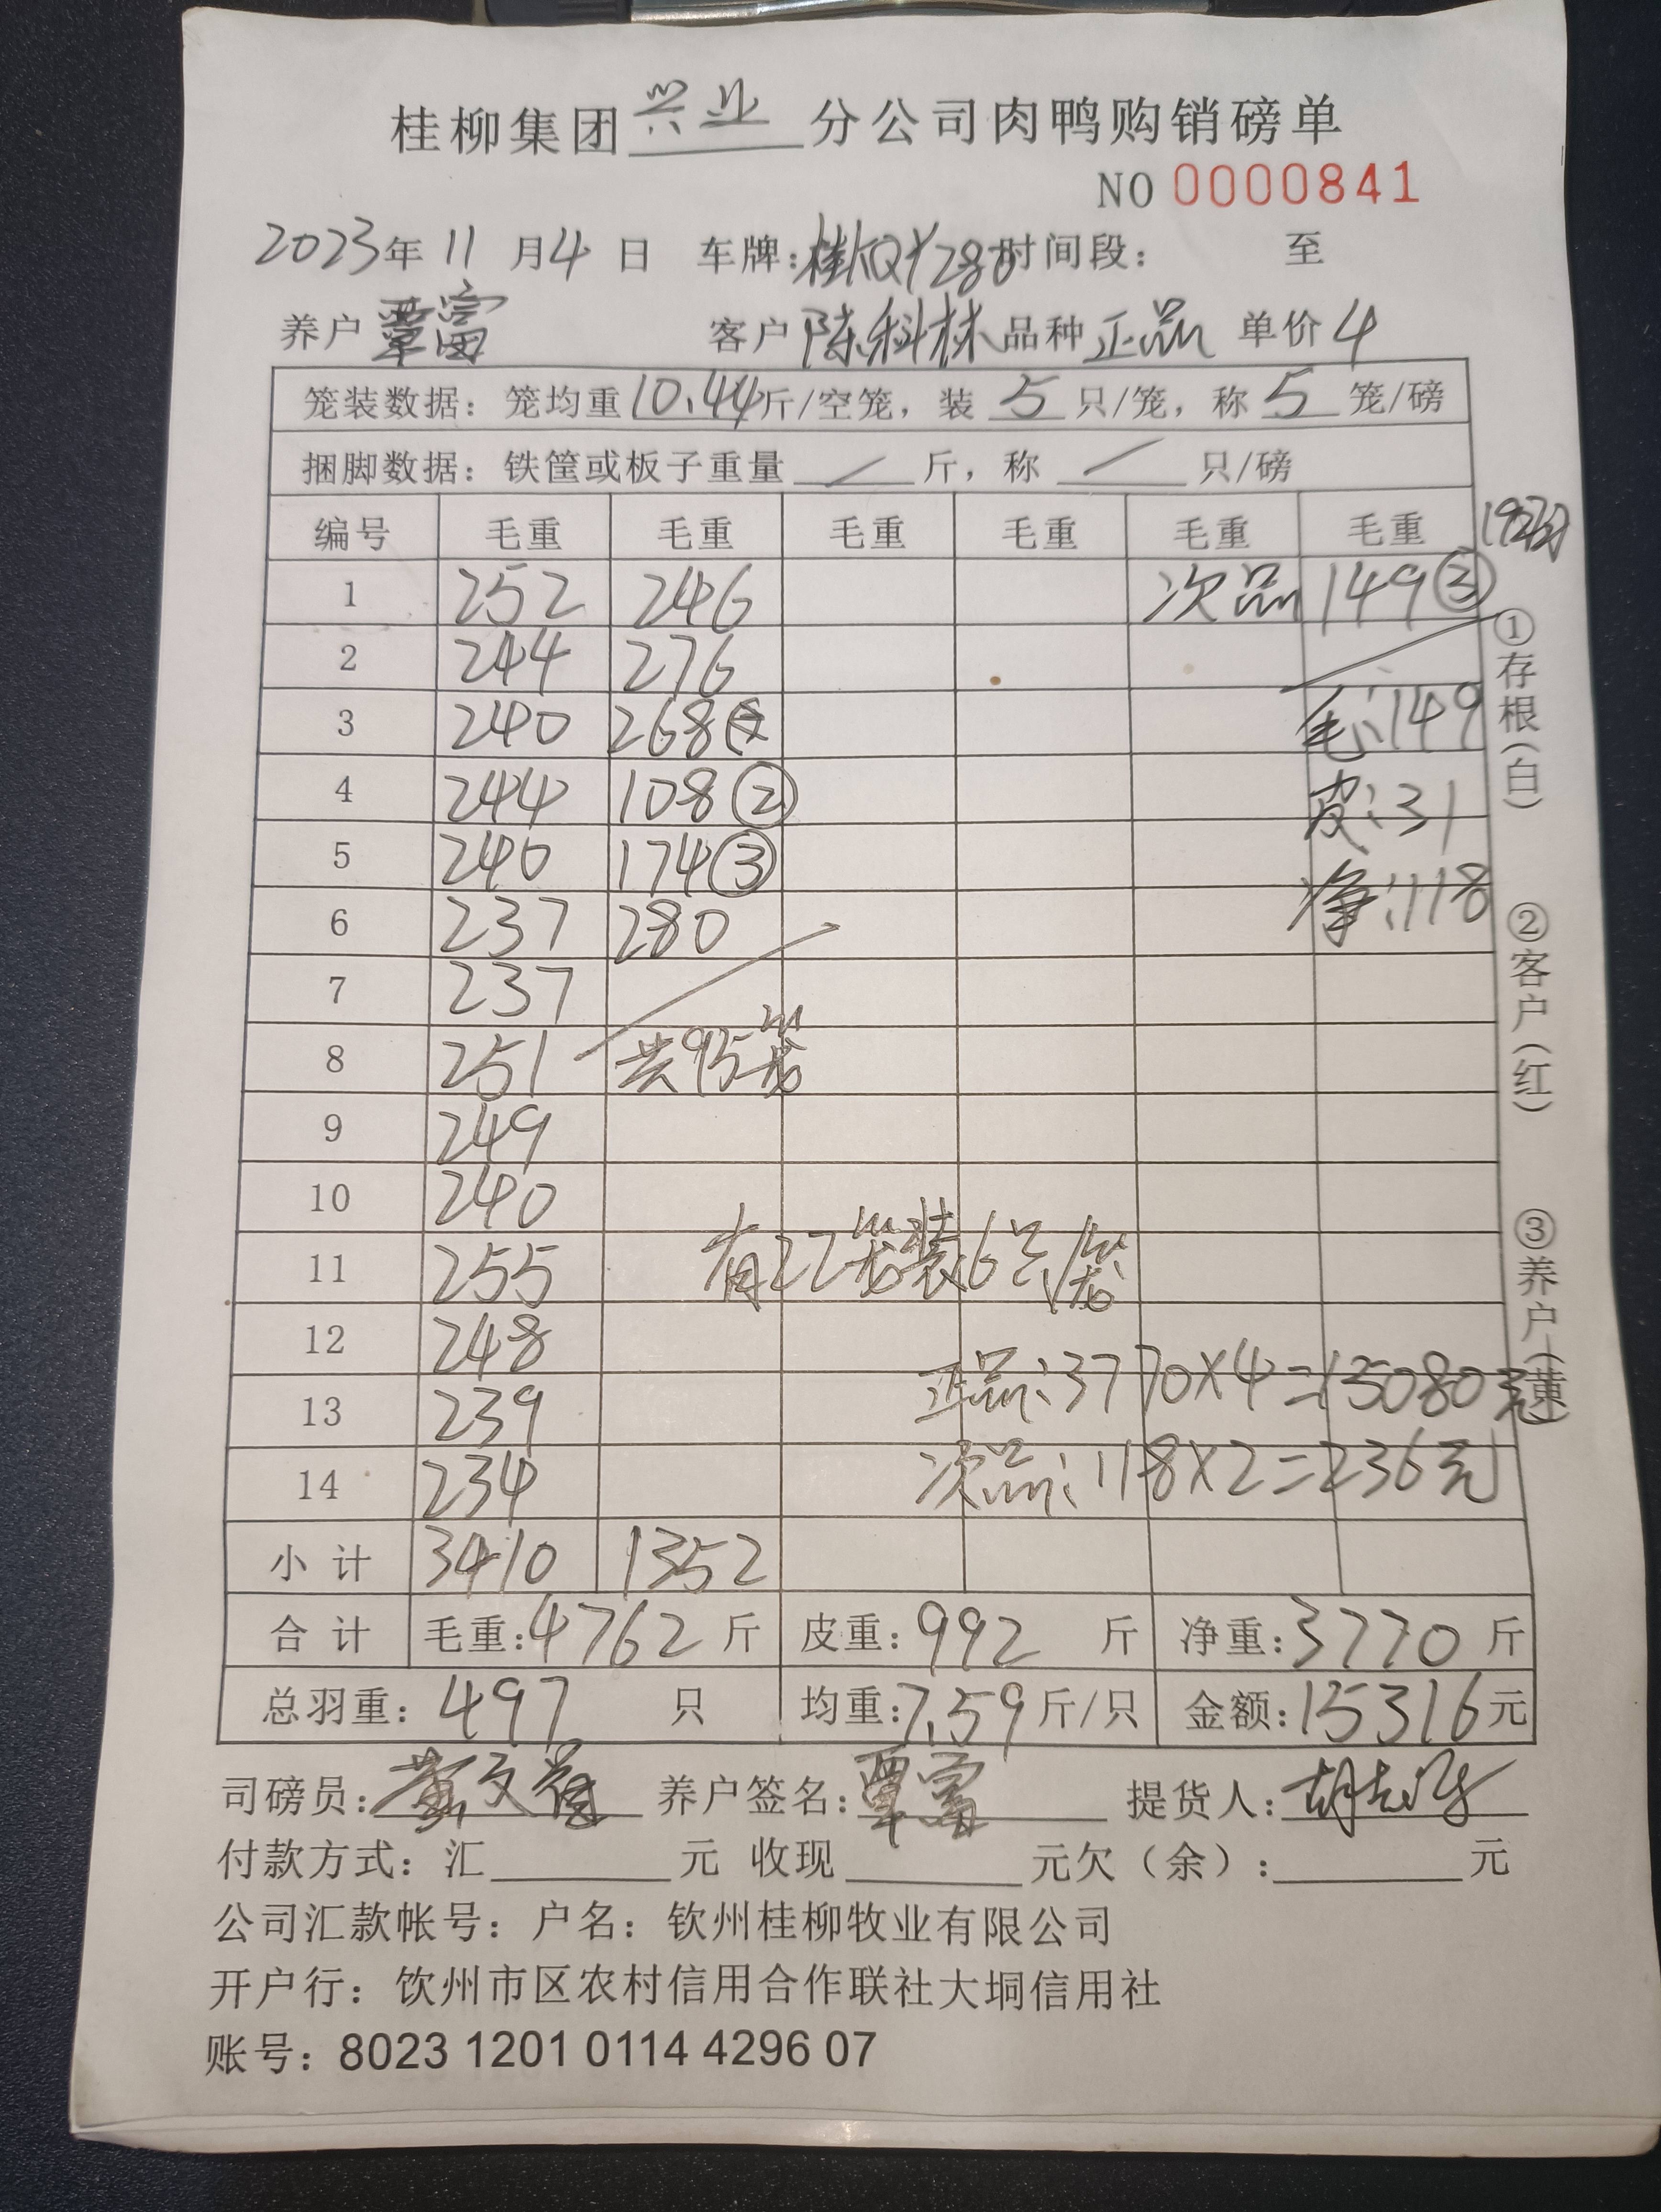 桂柳集团兴业分公司肉鸭购销磅单
NO 0000841
2023年 11 月 4 日 车牌:桂KQY280时间段: 至
养户 覃富 客户 陈科林 品种 正品 单价 4
笼装数据: 笼均重 10.44斤/空笼, 装 5 只/笼, 称 5 笼/磅
捆脚数据: 铁筐或板子重量 / 斤, 称 / 只/磅
编号 毛重 毛重 毛重 毛重 毛重 毛重
1 252 246 次品 149③
2 244 276
3 240 268
4 244 108② 
5 240 174③
6 237 280
7 237
8 251 共95笼
9 249
10 240
11 255 有22笼装6只/笼
12 248
13 239
14 234
毛:149
皮:31
净:118
正品:3770×4=15080元
次品:118×2=236元
小计 3410 1352
合计 毛重:4762 斤 皮重:992 斤 净重:3770 斤
总羽重: 497 只 均重:7.59斤/只 金额:15316元
①存根(白) ②客户(红) ③养户(黄)
司磅员: 养户签名:覃富 提货人:
付款方式: 汇 元 收现 元欠(余): 元
公司汇款帐号: 户名: 钦州桂柳牧业有限公司
开户行: 饮州市区农村信用合作联社大垌信用社
账号: 8023 1201 0114 4296 07